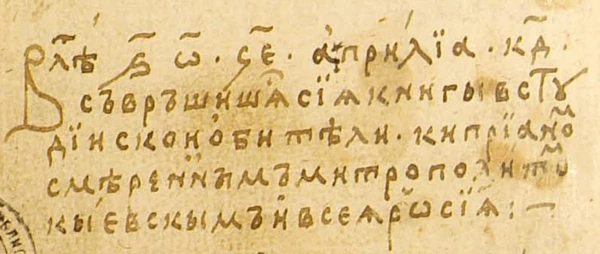 В лⷮѣ ҂ѕ҃ ѿ҃ · ҁ҃е · априлїа · к҃д ·
съвръшишѧсѧ сїѧ книгы в сту
дїискои обитѣли · кипрїаноⷨ
смѣреннымъ митрополитоⷨ
кыевскымъ и всеѧ рѡсїѧ :—